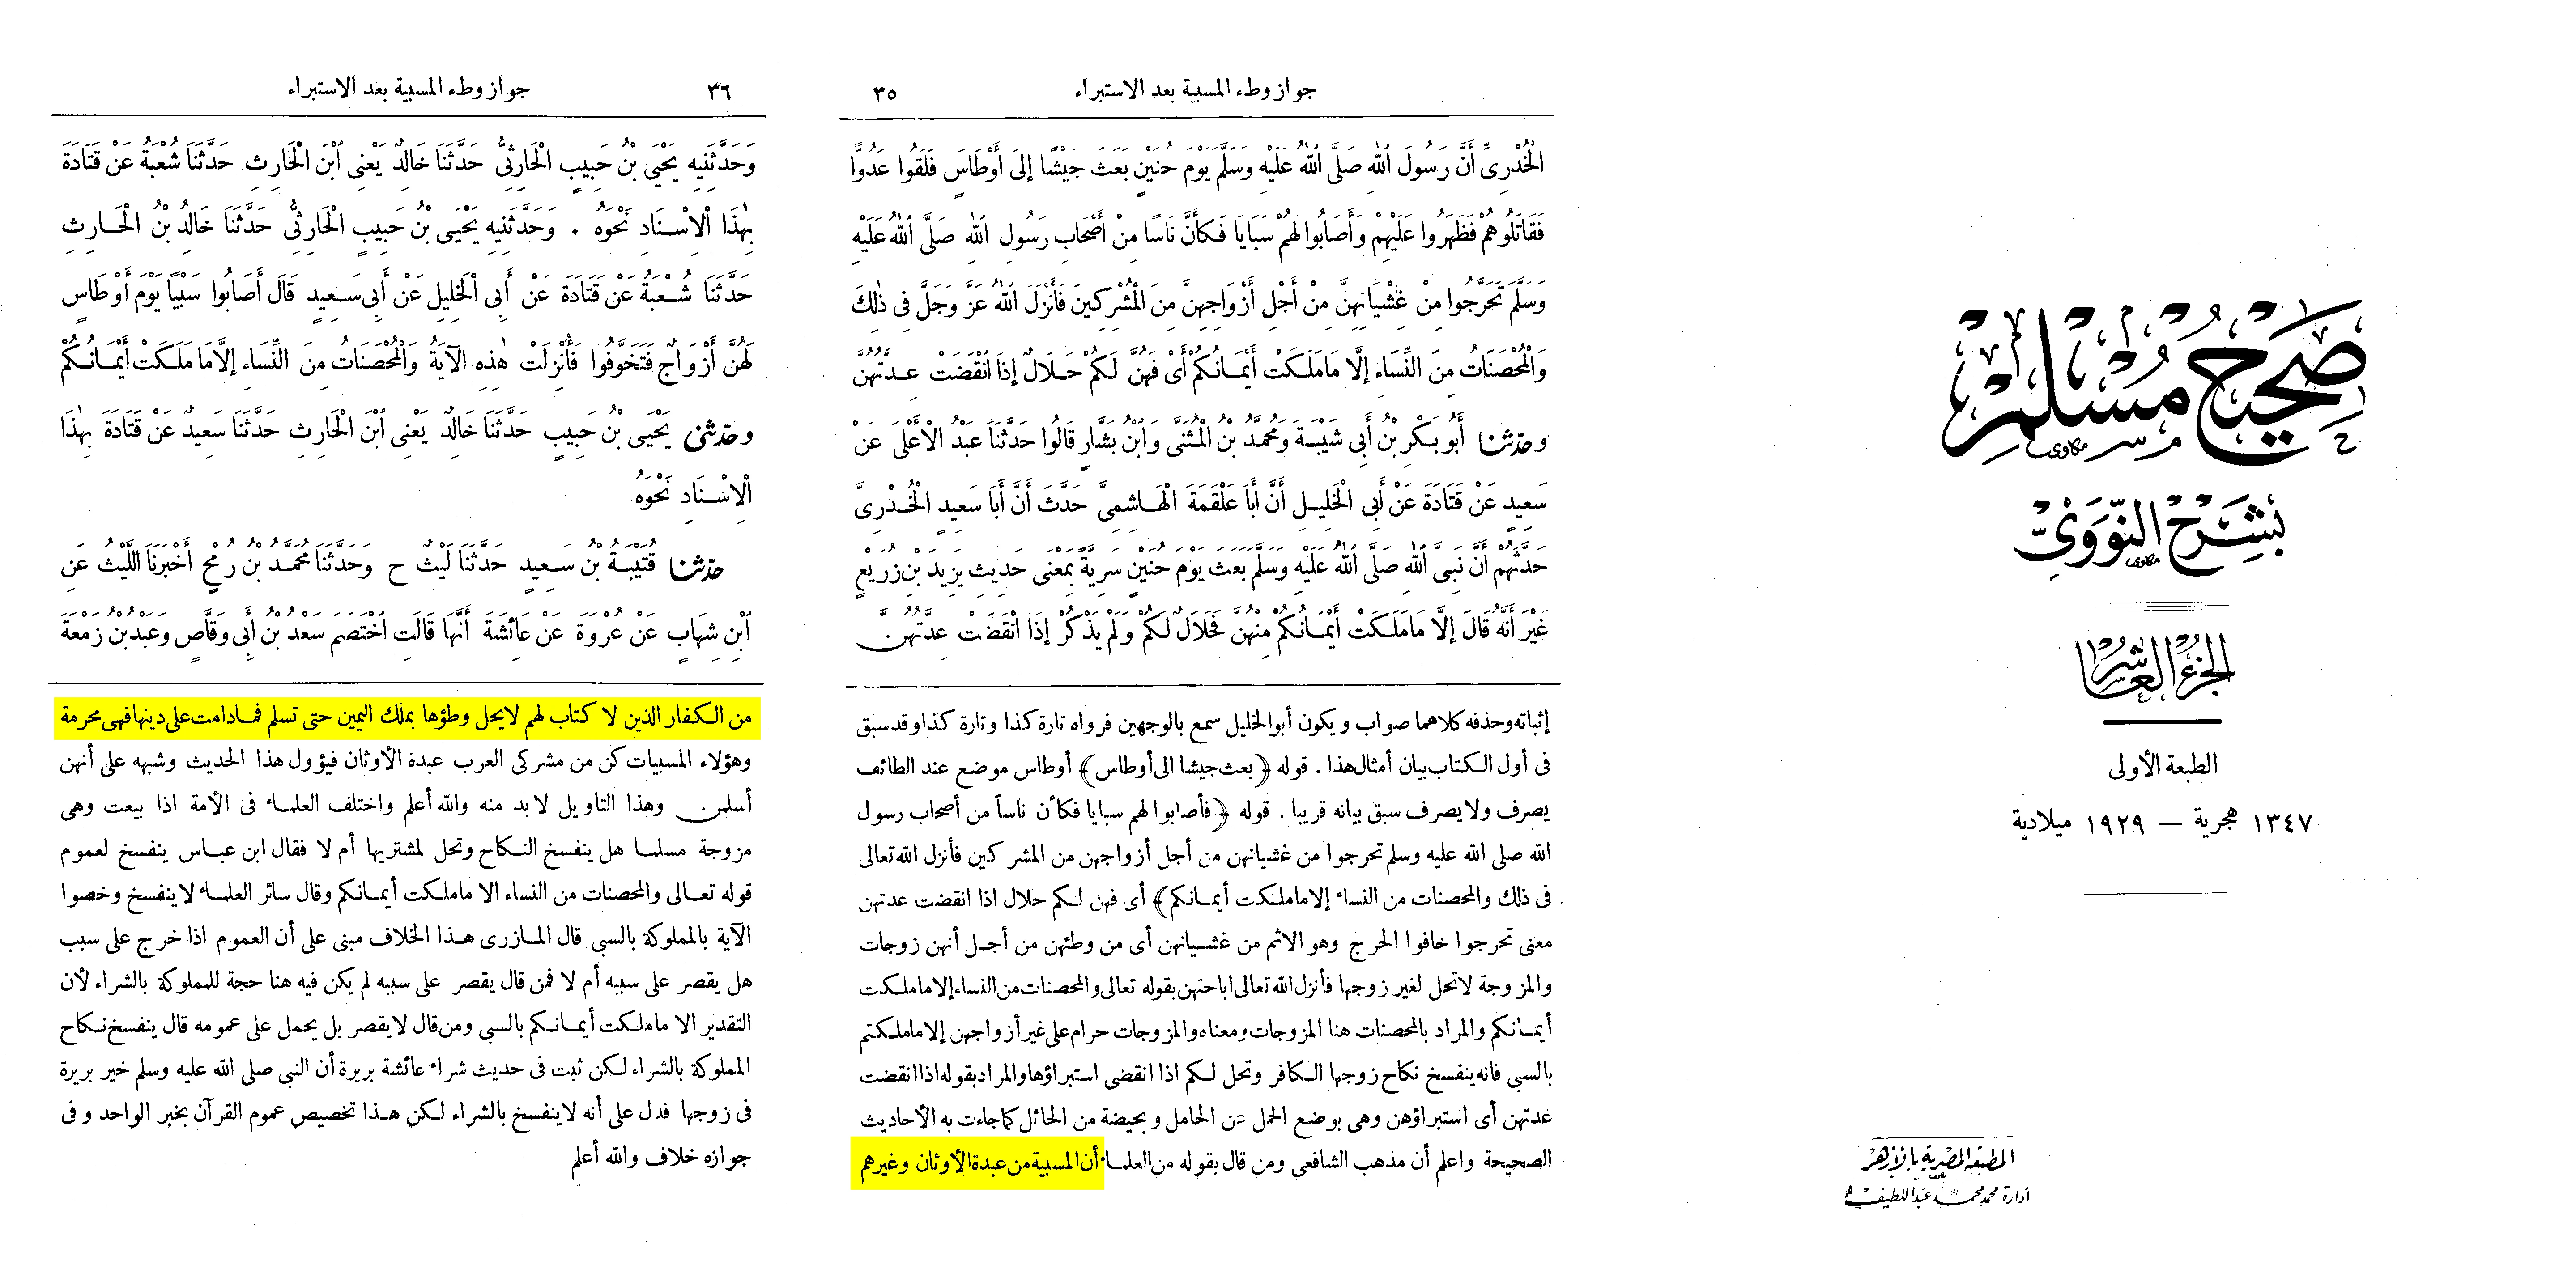 صَحِيحُ مُسْلِمٌ
مكاوى
بِشَرْحِ النَّوَوِىِّ
مكاوى
الجُزْءُ العَاشِرُ
الطبعة الأولى
١٣٤٧ هجرية — ١٩٢٩ ميلادية
المطبعة المصرية بالأزهر
أدارة محمد محمد عبد اللطيف
جواز وطء المسبية بعد الاستبراء ٣٥
الْخُدْرِىِّ أَنَّ رَسُولَ اللهِ صَلَّى اللهُ عَلَيْهِ وَسَلَّمَ يَوْمَ حُنَيْنٍ بَعَثَ جَيْشًا إِلَى أَوْطَاسٍ فَلَقُوا عَدُوًّا
فَقَاتَلُوهُمْ فَظَهَرُوا عَلَيْهِمْ وَأَصَابُوا لَهُمْ سَبَايَا فَكَأَنَّ نَاسًا مِنْ أَصْحَابِ رَسُولِ اللهِ صَلَّى اللهُ عَلَيْهِ
وَسَلَّمَ تَحَرَّجُوا مِنْ غِشْيَانِهِنَّ مِنْ أَجْلِ أَزْوَاجِهِنَّ مِنَ الْمُشْرِكِينَ فَأَنْزَلَ اللهُ عَزَّ وَجَلَّ فِى ذٰلِكَ
وَالْمُحْصَنَاتُ مِنَ النِّسَاءِ إِلَّا مَا مَلَكَتْ أَيْمَانُكُمْ أَىْ فَهُنَّ لَكُمْ حَلَالٌ إِذَا انْقَضَتْ عِدَّتُهُنَّ
وحدّثنا أَبُو بَكْرِ بْنُ أَبِى شَيْبَةَ وَمُحَمَّدُ بْنُ الْمُثَنَّى وَابْنُ بَشَّارٍ قَالُوا حَدَّثَنَا عَبْدُ الْأَعْلَى عَنْ
سَعِيدٍ عَنْ قَتَادَةَ عَنْ أَبِى الْخَلِيلِ أَنَّ أَبَا عَلْقَمَةَ الْهَاشِمِىَّ حَدَّثَ أَنَّ أَبَا سَعِيدٍ الْخُدْرِىَّ
حَدَّثَهُمْ أَنَّ نَبِىَّ اللهِ صَلَّى اللهُ عَلَيْهِ وَسَلَّمَ بَعَثَ يَوْمَ حُنَيْنٍ سَرِيَّةً بِمَعْنَى حَدِيثِ يَزِيدَ بْنِ زُرَيْعٍ
غَيْرَ أَنَّهُ قَالَ إِلَّا مَا مَلَكَتْ أَيْمَانُكُمْ مِنْهُنَّ فَحَلَالٌ لَكُمْ وَلَمْ يَذْكُرْ إِذَا انْقَضَتْ عِدَّتُهُنَّ
إثباته وحذفه كلاهما صواب ويكون أبو الخليل سمع بالوجهين فرواه تارة كذا وتارة كذا وقد سبق
فى أول الكتاب بيان أمثال هذا . قوله ﴿بعث جيشا الى أوطاس﴾ أوطاس موضع عند الطائف
يصرف ولا يصرف سبق بيانه قريبا . قوله ﴿فأصابوا لهم سبايا فكأن ناساً من أصحاب رسول
الله صلى الله عليه وسلم تحرجوا من غشيانهن من أجل أزواجهن من المشركين فأنزل الله تعالى
فى ذلك والمحصنات من النساء إلا ما ملكت أيمانكم﴾ أى فهن لكم حلال اذا انقضت عدتهن
معنى تحرجوا خافوا الحرج وهو الاثم من غشيانهن أى من وطئهن من أجل أنهن زوجات
والمزوجة لا تحل لغير زوجها فأنزل الله تعالى اباحتهن بقوله تعالى والمحصنات من النساء إلا ما ملكت
أيمانكم والمراد بالمحصنات هنا المزوجات ومعناه والمزوجات حرام على غير أزواجهن إلا ما ملكتم
بالسبى فانه ينفسخ نكاح زوجها الكافر وتحل لكم اذا انقضى استبراؤها والمراد بقوله اذا انقضت
عدتهن أى استبراؤهن وهى بوضع الحمل عن الحامل وبحيضة من الحائل كما جاءت به الأحاديث
الصحيحة واعلم أن مذهب الشافعى ومن قال بقوله من العلماء أن المسبية من عبدة الأوثان وغيرهم
جواز وطء المسبية بعد الاستبراء ٣٦
وَحَدَّثَنِيهِ يَحْيَى بْنُ حَبِيبٍ الْحَارِثِىُّ حَدَّثَنَا خَالِدٌ يَعْنِى ابْنَ الْحَارِثِ حَدَّثَنَا شُعْبَةُ عَنْ قَتَادَةَ
بِهٰذَا الْإِسْنَادِ نَحْوَهُ . وَحَدَّثَنِيهِ يَحْيَى بْنُ حَبِيبٍ الْحَارِثِىُّ حَدَّثَنَا خَالِدُ بْنُ الْحَارِثِ
حَدَّثَنَا شُعْبَةُ عَنْ قَتَادَةَ عَنْ أَبِى الْخَلِيلِ عَنْ أَبِى سَعِيدٍ قَالَ أَصَابُوا سَبْيًا يَوْمَ أَوْطَاسٍ
لَهُنَّ أَزْوَاجٌ فَتَخَوَّفُوا فَأُنْزِلَتْ هٰذِهِ الْآيَةُ وَالْمُحْصَنَاتُ مِنَ النِّسَاءِ إِلَّا مَا مَلَكَتْ أَيْمَانُكُمْ
وحدّثنى يَحْيَى بْنُ حَبِيبٍ حَدَّثَنَا خَالِدٌ يَعْنِى ابْنَ الْحَارِثِ حَدَّثَنَا سَعِيدٌ عَنْ قَتَادَةَ بِهٰذَا
الْإِسْنَادِ نَحْوَهُ
حدّثنا قُتَيْبَةُ بْنُ سَعِيدٍ حَدَّثَنَا لَيْثٌ ح وَحَدَّثَنَا مُحَمَّدُ بْنُ رُمْحٍ أَخْبَرَنَا اللَّيْثُ عَنِ
ابْنِ شِهَابٍ عَنْ عُرْوَةَ عَنْ عَائِشَةَ أَنَّهَا قَالَتِ اخْتَصَمَ سَعْدُ بْنُ أَبِى وَقَّاصٍ وَعَبْدُ بْنُ زَمْعَةَ
من الكفار الذين لا كتاب لهم لا يحل وطؤها بملك اليمين حتى تسلم فمادامت على دينها فهى محرمة
وهؤلاء المسبيات كن من مشركى العرب عبدة الأوثان فيؤول هذا الحديث وشبهه على أنهن
أسلمن وهذا التاويل لا بد منه والله أعلم واختلف العلماء فى الأمة اذا بيعت وهى
مزوجة مسلما هل ينفسخ النكاح وتحل لمشتريها أم لا فقال ابن عباس ينفسخ لعموم
قوله تعالى والمحصنات من النساء الا ما ملكت أيمانكم وقال سائر العلماء لا ينفسخ وخصوا
الآية بالمملوكة بالسبى قال المازرى هذا الخلاف مبنى على أن العموم اذا خرج على سبب
هل يقصر على سببه أم لا فمن قال يقصر على سببه لم يكن فيه هنا حجة للمملوكة بالشراء لأن
التقدير الا ما ملكت أيمانكم بالسبى ومن قال لا يقصر بل يحمل على عمومه قال ينفسخ نكاح
المملوكة بالشراء لكن ثبت فى حديث شراء عائشة بريرة أن النبى صلى الله عليه وسلم خير بريرة
فى زوجها فدل على أنه لا ينفسخ بالشراء لكن هذا تخصيص عموم القرآن بخبر الواحد وفى
جوازه خلاف والله أعلم